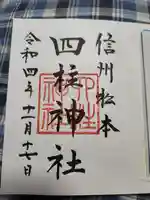 信州松本
四柱神社
令和四年十一月十七日